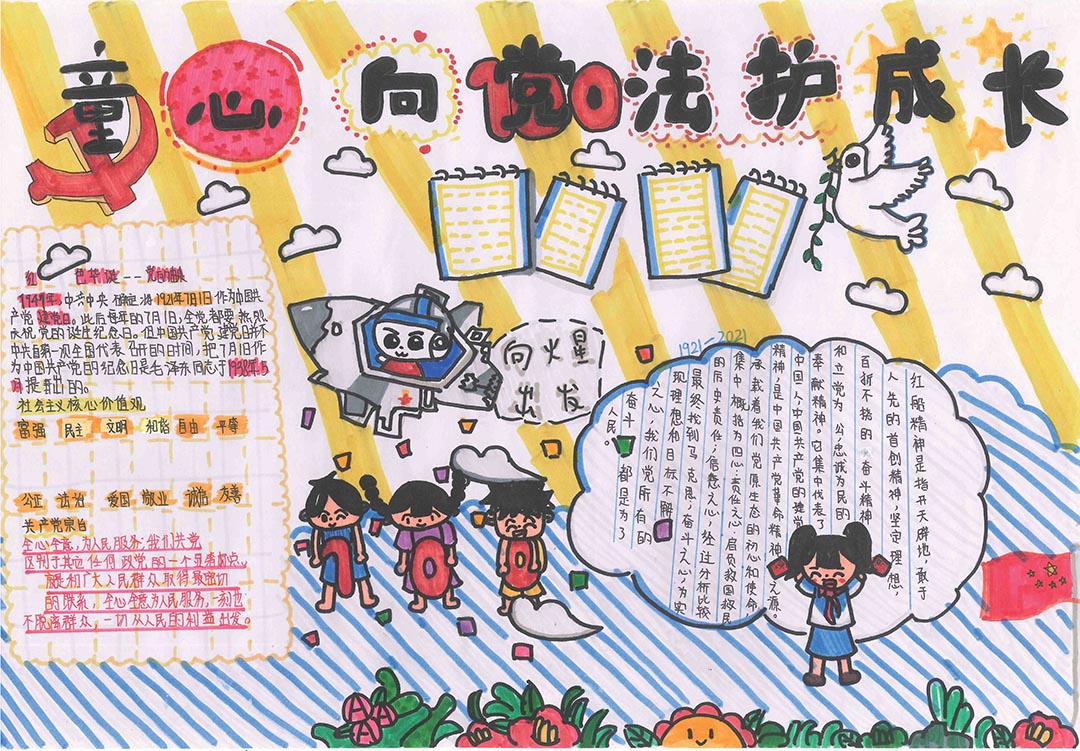 童心向党 100 法护成长
红色华诞——党的由来
1941年,中共中央确定将1921年7月1日作为中国共
产党建党日。此后每年的7月1日,全党都要热烈
庆祝党的诞生纪念日。但中国共产党建党日并不
中共自第一次全国代表召开的时间,把7月1日作
为中国共产党的纪念日是毛泽东同志于1938年5
月提出的。
社会主义核心价值观
富强 民主 文明 和谐 自由 平等
公正 法治 爱国 敬业 诚信 友善
共产党宗旨
全心全意,为人民服务;我们共党
区别于其它任何政党的一个显著标点、
就是和广大人民群众取得最密切
的联系,全心全意为人民服务,一刻也
不脱离群众,一切从人民的利益出发。
向火星
出发
1921-2021
红船精神是指开天辟地,敢于
人先的首创精神,坚定理想,
百折不挠的奋斗精神
和立党为公,忠诚为民的
奉献精神。它集中代表了
中国人,中国共产党的建党
精神,是中国共产党革命精神之源。
承载着我们党原生态的初心和使命
集中概括为四心:责任之心,肩负救国救民
的历史责任;信意之心,经过分析比较
最终找到马克思,奋斗之心,为实
现理想和目标不懈
之心,我们党所有的
奋斗 都是为了
人民。
100